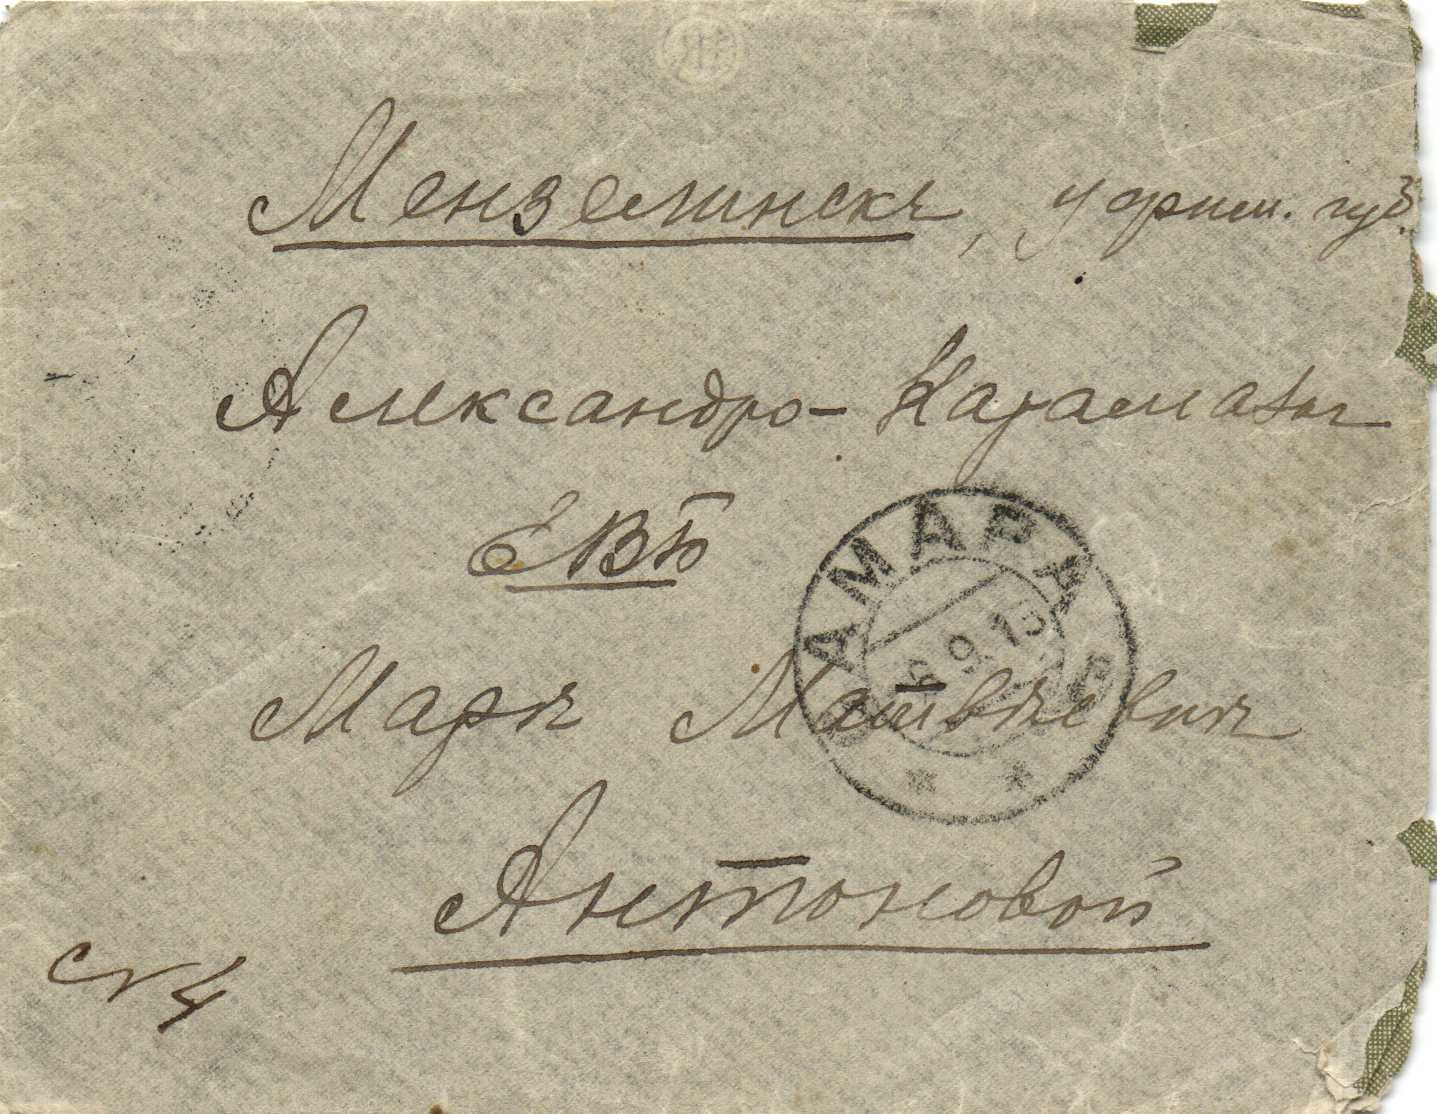 Мензелинскъ, Уфим. губ.
Александро-Карамалы
ЕВБ
Марiи Матвѣевнѣ
Антоновой
САМАРА
6.9.15
№ 4